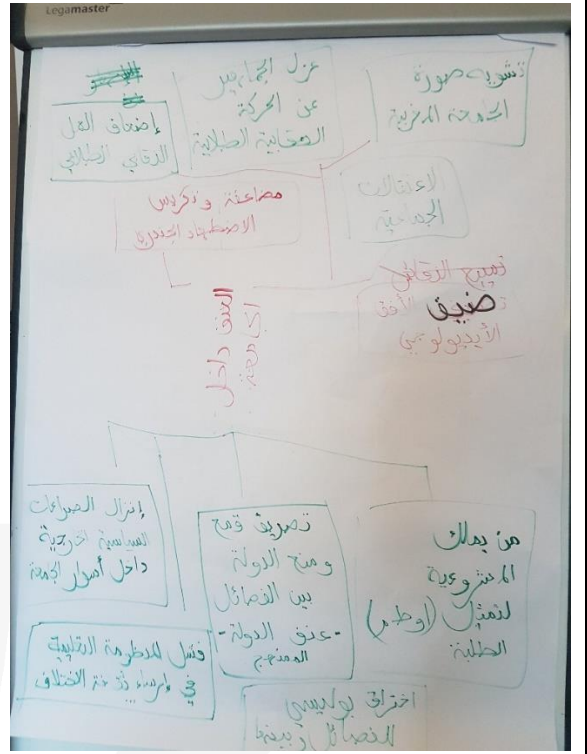 Legamaster
تشويه صورة
الجامعة المغربية
عزل الجماهير
عن الحركة
النقابية الطلابية
إضعاف العمل
النقابي الطلابي
الاعتقالات
الجماعية
مضاعفة وتكريس
الاضطهاد الجندري
تمييع النقاش
ضيق الأفق
الأيديولوجي
العنف داخل
الجامعة
إنزال الصراعات
السياسية الخارجية
داخل أسوار الجامعة
تصريف قمع
ومنح الدولة
بين الفصائل
-عنف الدولة-
الممنهج
من يملك
المشروعية
لتمثيل (أوطم)
الطلبة
فشل المنظومة التعليمية
في إرساء الاختلاف
اختراق بوليسي
للفصائل